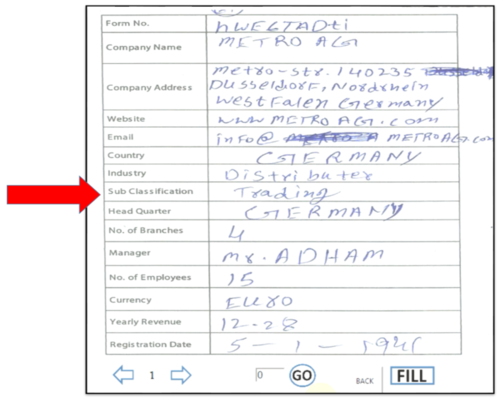 Form No. hWEGTADti
Company Name METRO AG
Company Address Metro-str. 140235
DUsseldorF, Nordrhein
WestFalen Germany
Website WWW METRO AG. com
Email info@ METROAG.com
Country GERMANY
Industry Distributer
Sub Classification Trading
Head Quarter GERMANY
No. of Branches 4
Manager Mr. ADHAM
No. of Employees 15
Currency EURO
Yearly Revenue 12-28
Registration Date 5-1-
1 0 GO BACK FILL